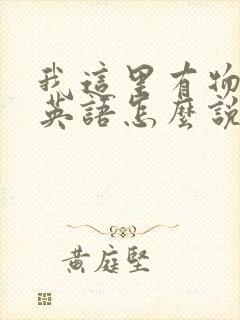 我這里有物
英語怎麼說
黃庭堅